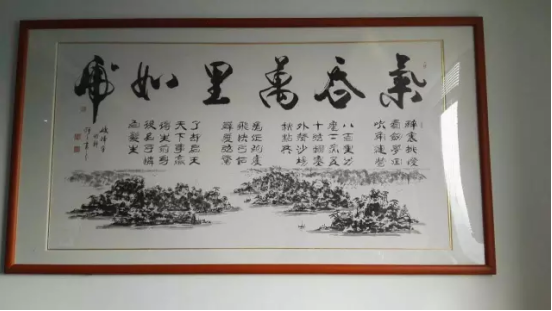 氣吞萬里如虎
醉裏挑燈
看劍夢回
吹角連營
八百里分
麾下炙五
十弦翻塞
外聲沙場
秋點兵
馬作的盧
飛快弓如
霹靂弦驚
了却君王
天下事贏
得生前身
後名可憐
白髮生